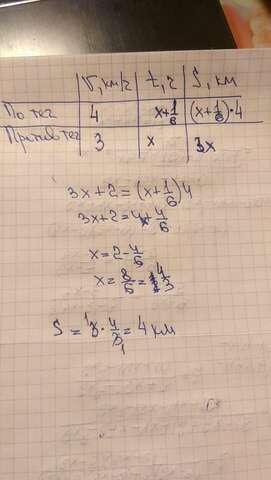 V, км/ч t, ч S, км
По теч 4 x+1/6 (x+1/6)·4
Против теч 3 x 3x
3x+2=(x+1/6)4
3x+2=4x+4/6
x=2-4/6
x=8/6=4/3
S=3·4/3=4 км